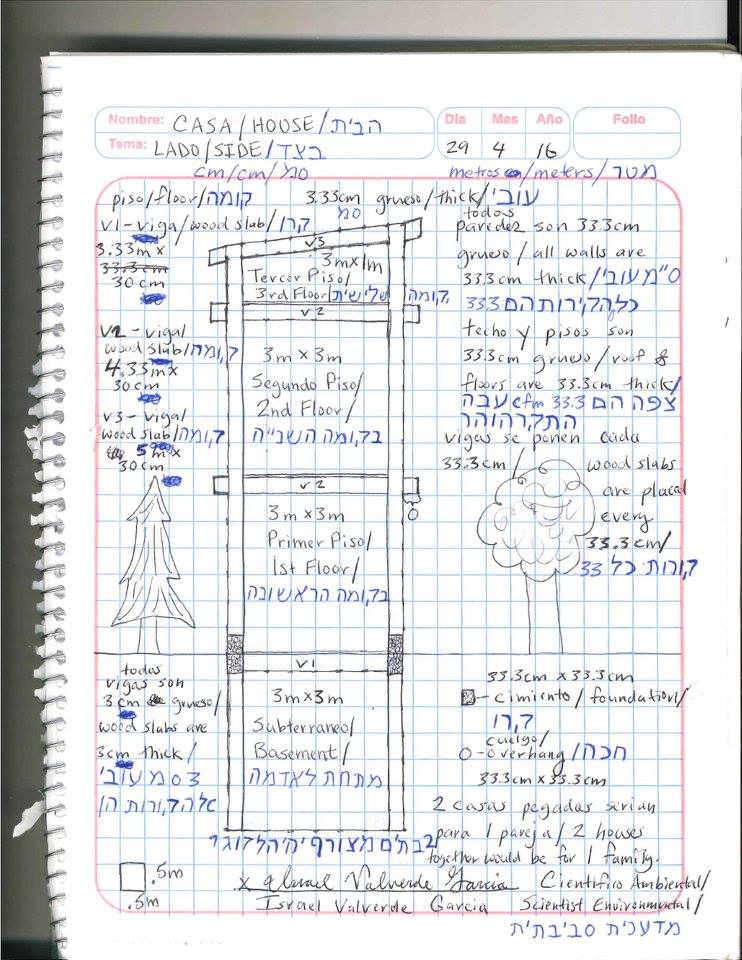 Nombre: CASA/HOUSE/הבית
Tema: LADO/SIDE/בצד
Dia Mes Año Folio
29 4 16
cm/cm/סמ
metros/meters/מטר
piso/floor/קומה
3.33cm grueso/thick/עובי
סמ
V1-viga/wood slab/קרן
3.33m x
30cm
V2-viga/
wood slab/קומה
4.33m x
30cm
V3-viga/
wood slab/קומה
5m x
30cm
V3
3m x 1m
Tercer Piso/
3rd Floor/שלישית קומה
V2
3m x 3m
Segundo Piso/
2nd Floor/
בקומה השנייה
V2
O
3m x 3m
Primer Piso/
1st Floor/
בקומה הראשונה
V1
3m x 3m
Subterraneo/
Basement/
מתחת לאדמה
todos
paredez son 33.3cm
grueso/all walls are
33.3cm thick/ס"מ עובי
כל הקירות הם 33.3
techo y pisos son
33.3cm grueso/roof &
floors are 33.3cm thick/
צפה הם 33.3 cm עבה
vigas se ponen cada
33.3cm/ wood slabs
are placed
every
33.3cm/
קורות כל 33
todas
vigas son
3cm grueso/
wood slabs are
3cm thick/
33.3cm x 33.3cm
- cimiento/foundation/
קרן
cuelgo/
O-overhang/חכה
33.3cm x 33.3cm
2 casas pegadas serian
para 1 pareja/2 houses
together would be for 1 family.
.5m
.5m
x Israel Valverde Garcia Cientifico Ambiental/
Israel Valverde Garcia Scientist Environmental/
מדענית סביבתית